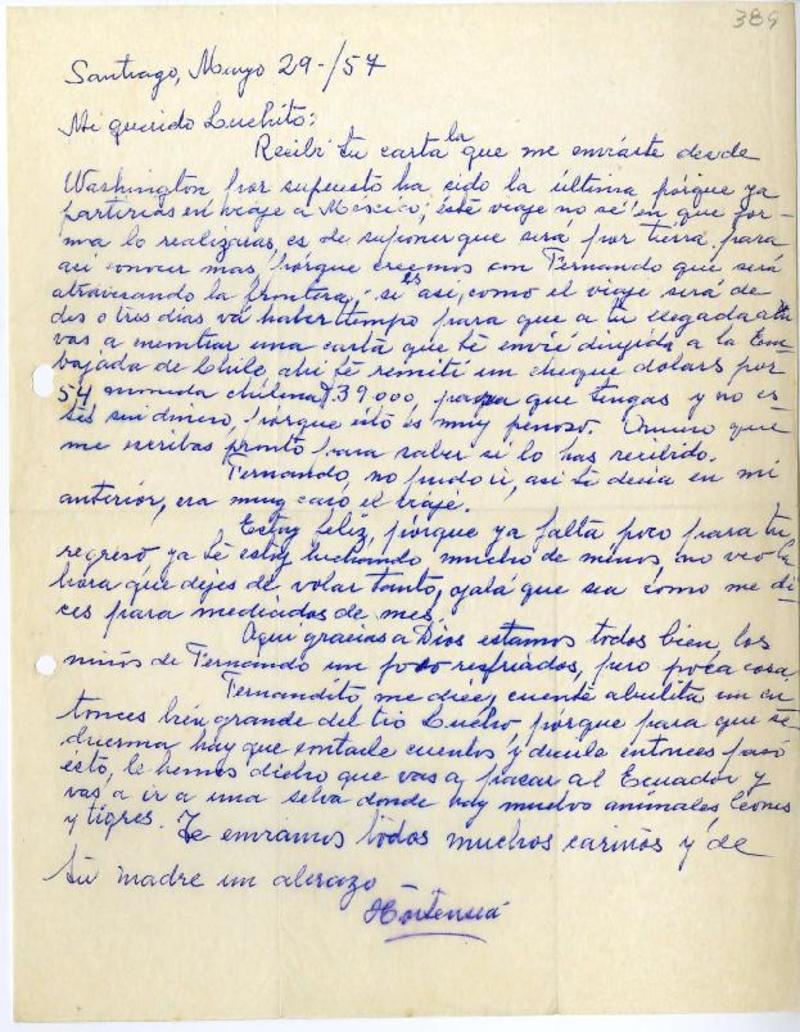 389
Santiago, Mayo 29-/57
Mi querido Luchito:
Recibí tu carta la que me enviáste desde
Washington por supuesto ha sido la última pórque ya
partirias en viaje a Méxcico; éste viaje no sé en que for-
ma lo realizaras, es de suponer que será por tierra para
así conocer mas, pórque creemos con Fernando que será
atravesando la frontera, si es así, como el viaje será de
dos o tres dias vá haber tiempo para que a tu llegada alla
vas a encontrar una cartá que te envié dirijida a la Em-
bajada de Chile ahi té remití un cheque dolars por
54 moneda chilena $39000, para que tengas y no es-
tés sin dinero, pórque ésto es muy penoso. Quiero que
me escribas pronto para saber si lo has recibido.
Fernando, no pudo ir, asi te decia en mi
anteriór, era muy caro el viajé.
Estoy feliz, pórque ya falta poco para tu
regreso ya te estoy hechando mucho de menos, no veo la
hora qué dejes de volar tanto, ojalá que sea como me di-
ces para mediados de mes.
Aqui gracias a Dios estamos todos bien, los
niños de Fernando un poco resfriados, pero poca cosa.
Fernandito, me dice, cuenté abuelita un en
tonces bien grande del tio Lucho pórque para que se
duerma hay que contarle cuentos y decirle entonces pasó
ésto, le hemos dicho que vas a pasar al Ecuador y
vas a ir a una selva donde hay muchos animales, leones
y tigres. Te enviamos todos muchos cariños y de
tu madre un abrazo
Hortensia